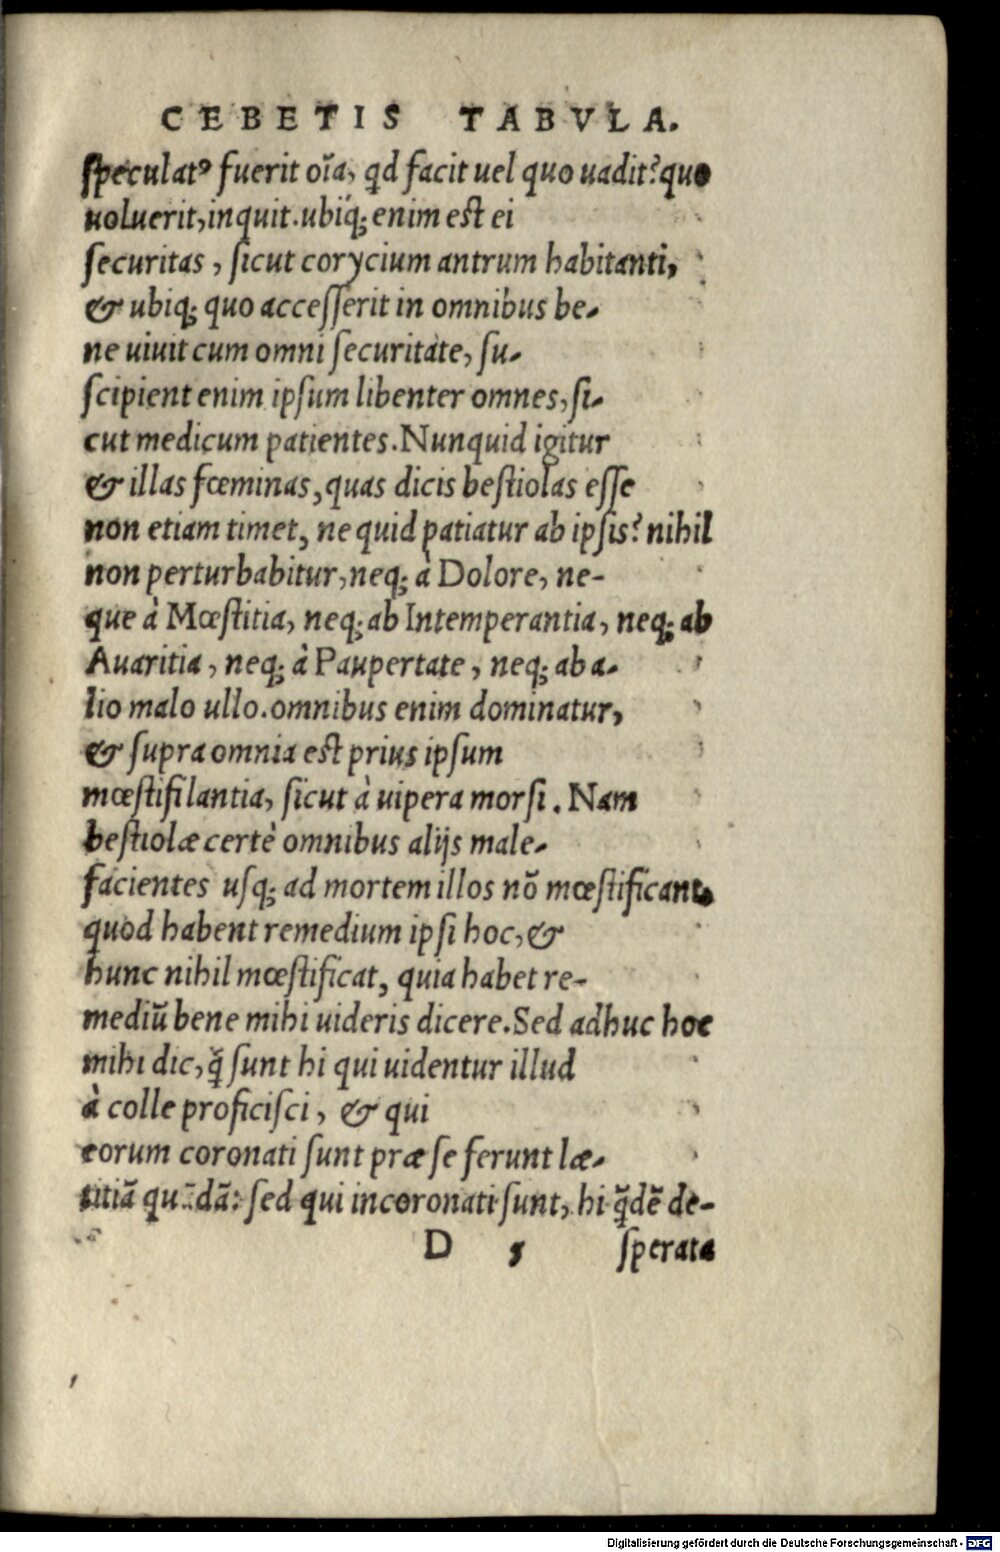 CEBETIS TABVLA.
ſpeculatꝰ fuerit oīa, qd facit uel quo uadit? quo
uoluerit, inquit. ubiq; enim eſt ei
ſecuritas, ſicut corycium antrum habitanti,
& ubiq; quo acceſſerit in omnibus be-
ne uiuit cum omni ſecuritate, ſu-
ſcipient enim ipſum libenter omnes, ſi-
cut medicum patientes. Nunquid igitur
& illas fœminas, quas dicis beſtiolas eſſe
non etiam timet, ne quid patiatur ab ipſis? nihil
non perturbabitur, neq; à Dolore, ne-
que à Mœſtitia, neq; ab Intemperantia, neq; ab
Auaritia, neq; à Paupertate, neq; ab a-
lio malo ullo. omnibus enim dominatur,
& ſupra omnia eſt prius ipſum
mœſtifilantia, ſicut à uipera morſi. Nam
beſtiolæ certè omnibus alijs male-
facientes uſq; ad mortem illos nō mœſtificant,
quod habent remedium ipſi hoc, &
hunc nihil mœſtificat, quia habet re-
mediū bene mihi uideris dicere. Sed adhuc hoc
mihi dic, q̄ ſunt hi qui uidentur illud
à colle proficiſci, & qui
eorum coronati ſunt præ ſe ferunt læ-
titiā quādā: ſed qui incoronati ſunt, hi q̄dē de-
D 5 ſperata
Digitalisierung gefördert durch die Deutsche Forschungsgemeinschaft - DFG